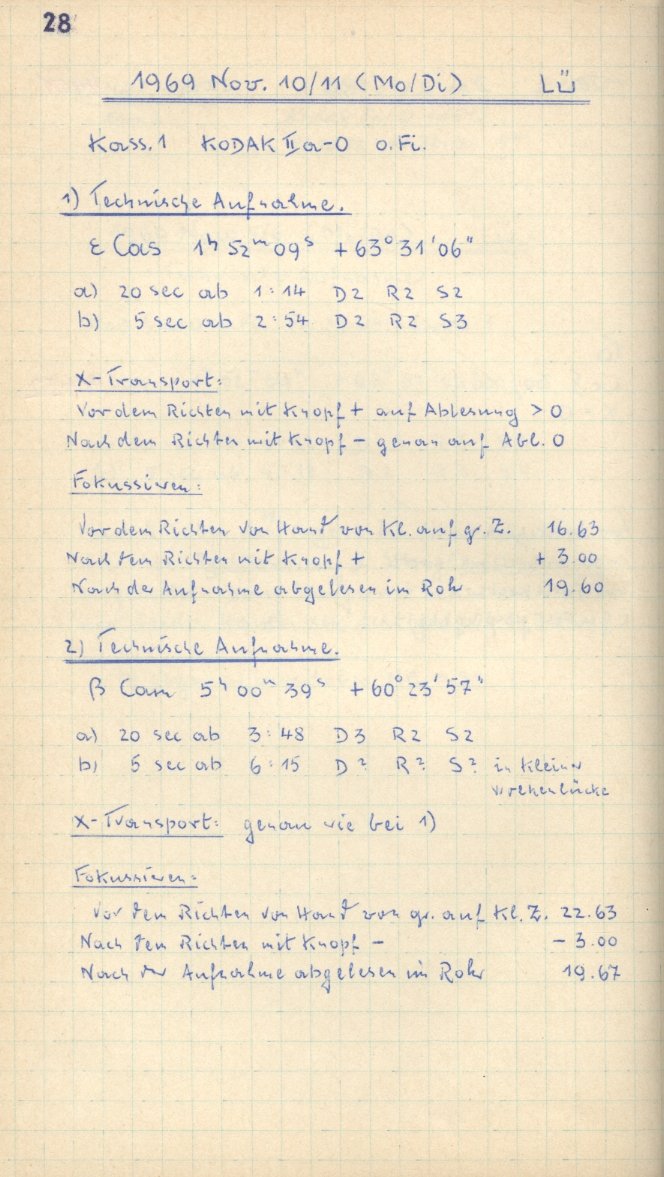 28
1969 Nov. 10/11 (Mo/Di) Lü
Kass.1 KODAK IIa-O o.Fi.
1) Technische Aufnahme.
ε Cas 1h 52m 09s +63° 31' 06"
a) 20 sec ab 1:14 D2 R2 S2
b) 5 sec ab 2:54 D2 R2 S3
X-Transport:
Vor dem Richten mit Knopf + auf Ablesung > 0
Nach dem Richten mit Knopf – genau auf Abl. 0
Fokussieren:
Vor dem Richten von Hand von kl. auf gr. Z. 16.63
Nach dem Richten mit Knopf + + 3.00
Nach der Aufnahme abgelesen im Rohr 19.60
2) Technische Aufnahme.
β Cam 5h 00m 39s +60° 23' 57"
a) 20 sec ab 3:48 D3 R2 S2
b) 5 sec ab 6:15 D? R? S? in kleiner
Wolkenlücke
X-Transport: genau wie bei 1)
Fokussieren:
Vor dem Richten von Hand von gr. auf kl. Z. 22.63
Nach dem Richten mit Knopf – – 3.00
Nach der Aufnahme abgelesen im Rohr 19.67